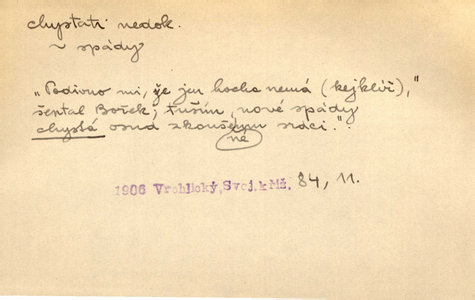 chystati nedok.
~ spády
„Podivno mi, že jen hocha nemá (kejklíř),"
šeptal Bořek, „tuším, nové spády
chystá osud zkoušenému srdci."
né
1906 Vrchlický, Svoj. k Mž. 84, 11.